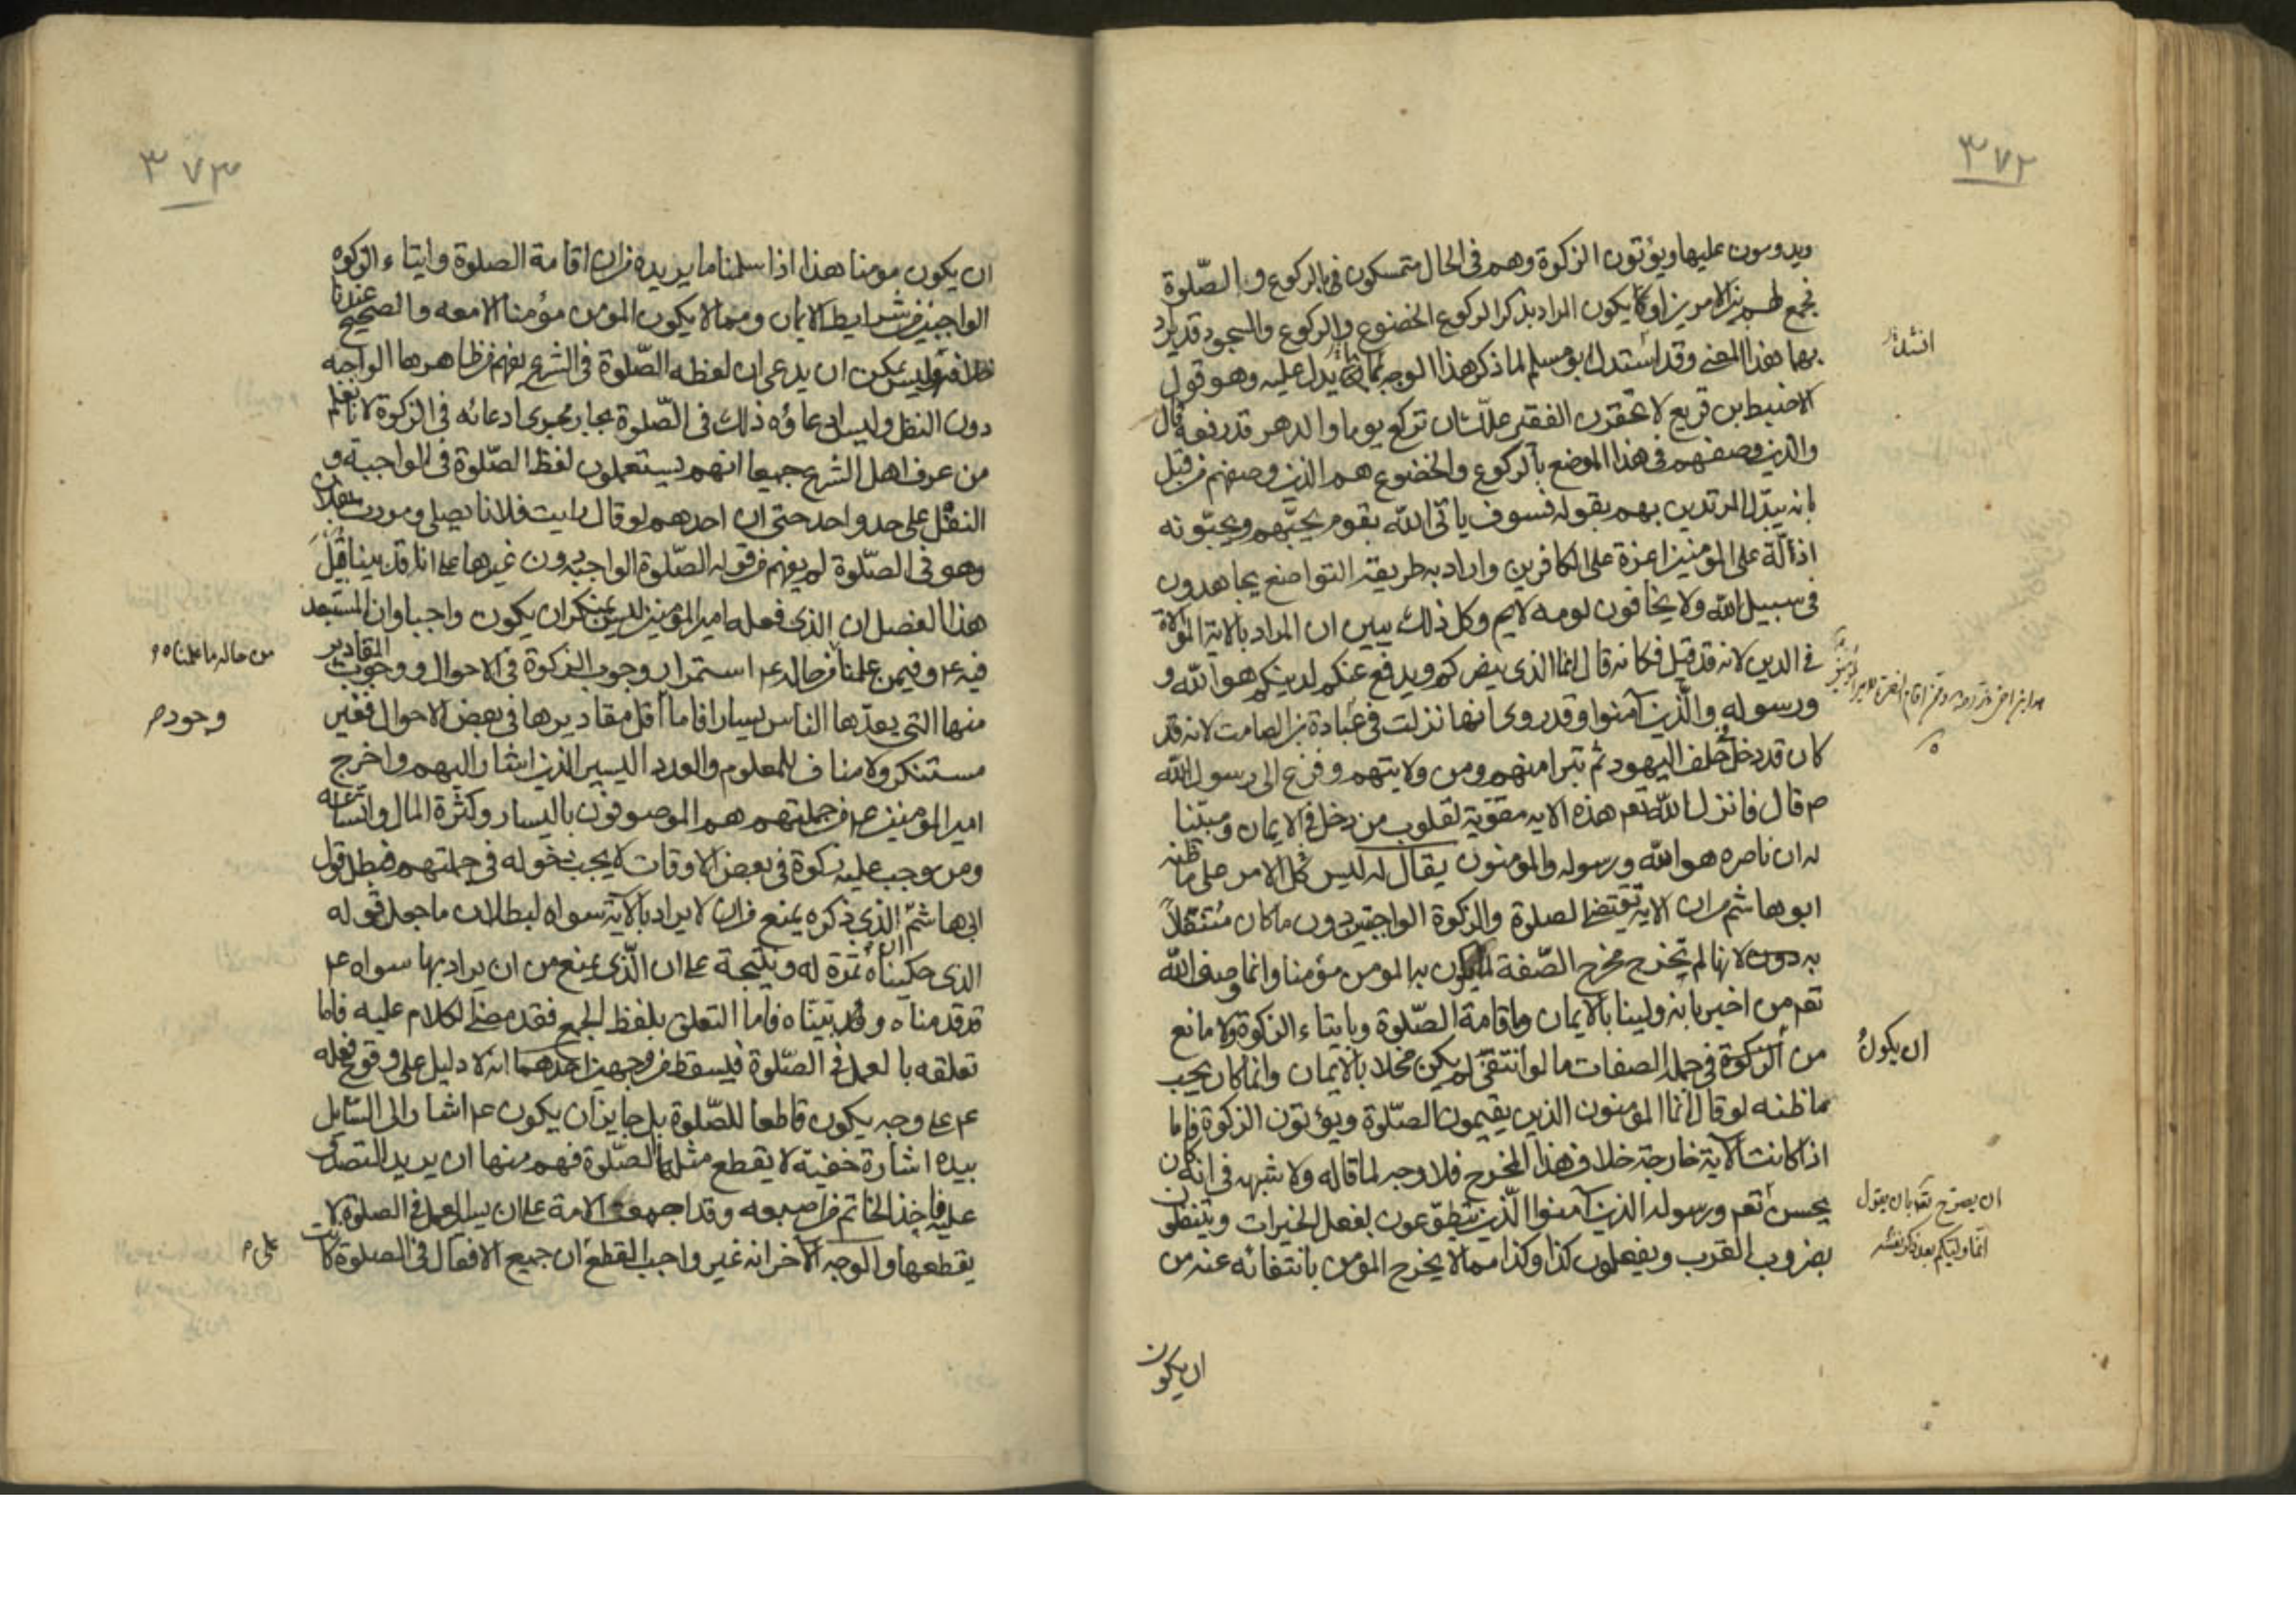 ٣٧٢
ويدومون عليها ويؤتون الزكوة وهم في الحال متمسكون بالركوع وبالصّلوة
فجمع لهم بين الامرين او يكون المراد بذكر الركوع الخضوع والركوع والسجود قد يراد
بهما هذا المعنى وقد استدل ابو مسلم لما ذكر هذا الوجه بما يدل عليه وهو قول
انشاد
الاضبط بن قريع لا تحقرن الفقير علّك ان تركع يوما والدهر قد رفعه قال
والذين وصفهم في هذا الموضع بالركوع والخضوع هم الذين وصفهم من قبل
بانه يبدّل المرتدين بهم بقوله فسوف ياتي الله بقوم يحبّهم ويحبّونه
اذلّة على المؤمنين اعزة على الكافرين واراد به طريقة التواضع يجاهدون
في سبيل الله ولا يخافون لومه لايم وكل ذلك يبين ان المراد بالاية الموالاة
في الدين لانه قد قيل فكانه قال انما الذي ينصركم ويدفع عنكم لدينكم هو الله و
ورسوله والّذين آمنوا وقد روى انها نزلت في عبادة بن الصامت لانه قد
كان قد دخل حلف اليهود ثم تبرا منهم ومن ولايتهم وفزع الى رسول الله
ص قال فانزل الله تعم هذه الايه مقوّية لقلوب من دخل في الايمان ومبيّنا
له ان ناصره هو الله ورسوله والمؤمنون يقال له ليس الامر على ما ظنه
ابو هاشم من ان الايه تقتضي الصلوة والزكوة الواجبتين دون ما كان متنفّلا
به دون لانها لم تخرج مخرج الصّفة لما يكون به المومن مؤمنا وانما وصف الله
تعم من اخبر بانه ولينا بالايمان وباقامة الصّلوة وبايتاء الزكوة ولا مانع
ان يكون
من الزكوة في جملة الصفات ما لو انتفى لم يكن مخلا بالايمان وانما كان يجب
ما ظنه لو قال انما المؤمنون الذين يقيمون الصّلوة ويؤتون الزكوة فاما
اذا كانت الاية خارجة خلاف هذا المخرج فلا وجه لما قاله ولا شبهه في انه كان
يحسن تعم ورسوله الذين آمنوا الّذين يتطوّعون بفعل الخيرات ويتنفلون
ان يصرح تعم بان يقول
انما وليكم بعد ذكر نفسه
بضروب القرب ويفعلون كذا وكذا مما لا يخرج المؤمن بانتفائه عنه من
ان يكون
٣٧٣
ان يكون مومنا هذا اذا سلمنا ما يريده من ان اقامة الصلوة وايتاء الزكوه
الواجبين من شرايط الايمان ومما لا يكون المؤمن مؤمنا الا معه والصحيح عندنا
خلافه وليس يمكن ان يدعى ان لفظه الصّلوة في الشرع يفهم من ظاهرها الواجبه
دون النفل وليس ادعاؤه ذلك في الصّلوة بجار مجرى ادعائه في الزكوة لانا نعلم
من عرف اهل الشرع جميعا انهم يستعملون لفظ الصّلوة في الواجبة و
النفل على حد واحد حتى ان احدهم لو قال رايت فلانا يصلي ومررت بفلان
وهو في الصّلوة لم يفهم من قوله الصّلوة الواجبه دون غيرها على انا قد بينا قبل
هذا الفصل ان الذي فعله امير المؤمنين ليس بمنكر ان يكون واجبا وان المستبعد
فيه ع وفيمن علمنا من حاله ع استمرار وجوب الزكوة في الاحوال ووجوب المقادير
من حاله ما علمناه
منها التي يعدّها الناس يسارا فاما اقل مقاديرها في بعض الاحوال فغير
وجود
مستنكر ولا مناف للمعلوم والعدد اليسير الذين اشار اليهم واخرج
امير المؤمنين ع من جملتهم هم الموصوفون باليسار وكثرة المال واتساعه
ومن وجب عليه زكوة في بعض الاوقات لا يجب دخوله في جملتهم فبطل قول
ابي هاشم ان الذي ذكره يمنع من ان لا يراد بالآية سواه لبطلان ما جعل قوله
الذي حكيناه ثمرة له ونتيجة على ان الّذي يمنع من ان يراد بها سواه ع
قد قدمناه وقد بيّنّاه فاما التعلق بلفظ الجمع فقد مضى الكلام عليه فاما
تعلقه بالعمل في الصّلوة فيسقط من وجهين احدهما انه لا دليل على وقوع فعله
ع على وجه يكون قاطعا للصّلوة بل جايز ان يكون ع اشار الى السّايل
بيده اشارة خفية لا يقطع مثلها الصّلوة فهم منها ان يريد التصدق
عليه فاخذ الخاتم من اصبعه وقد اجمعت الامة على ان يسير العمل في الصلوة لا
يقطعها والوجه الآخر انه غير واجب القطع ان جميع الافعال في الصلوة كانت
على